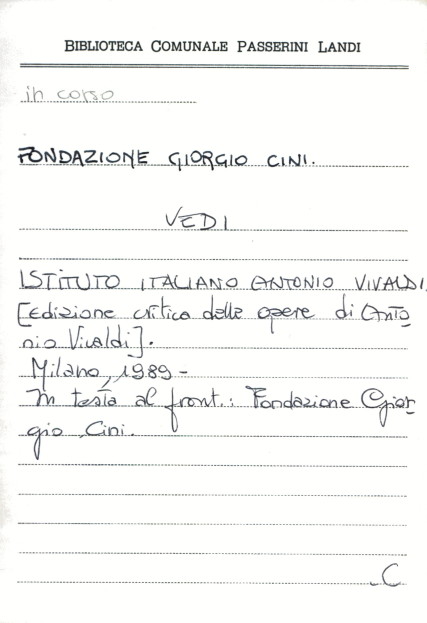 BIBLIOTECA COMUNALE PASSERINI LANDI
in corso
FONDAZIONE GIORGIO CINI.
VEDI
ISTITUTO ITALIANO ANTONIO VIVALDI
[Edizione critica delle opere di Anto
nio Vivaldi].
Milano, 1989-
In testa al front.: Fondazione Gior
gio Cini.
C